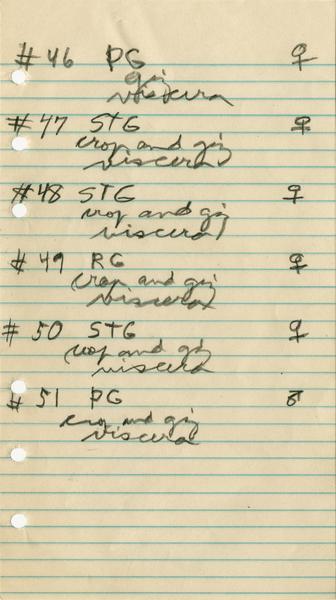 #46 PG ♀
giz
viscera
#47 STG ♀
crop and giz
viscera
#48 STG ♀
crop and giz
viscera
#49 RG ♀
crop and giz
viscera
#50 STG ♀
crop and giz
viscera
#51 PG ♂
crop and giz
viscera